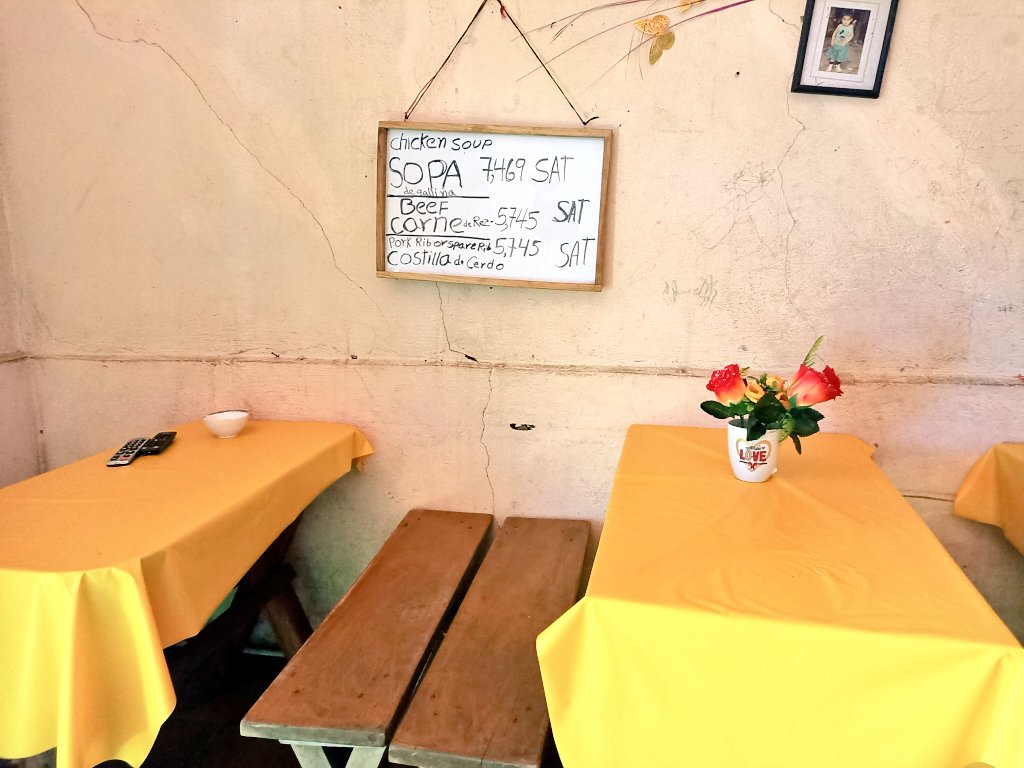 chicken soup
SOPA 7,469 SAT
de gallina
Beef
corne de Rez. 5,745 SAT
Pork Rib or spare Rib 5,745 SAT
costilla de Cerdo
LOVE